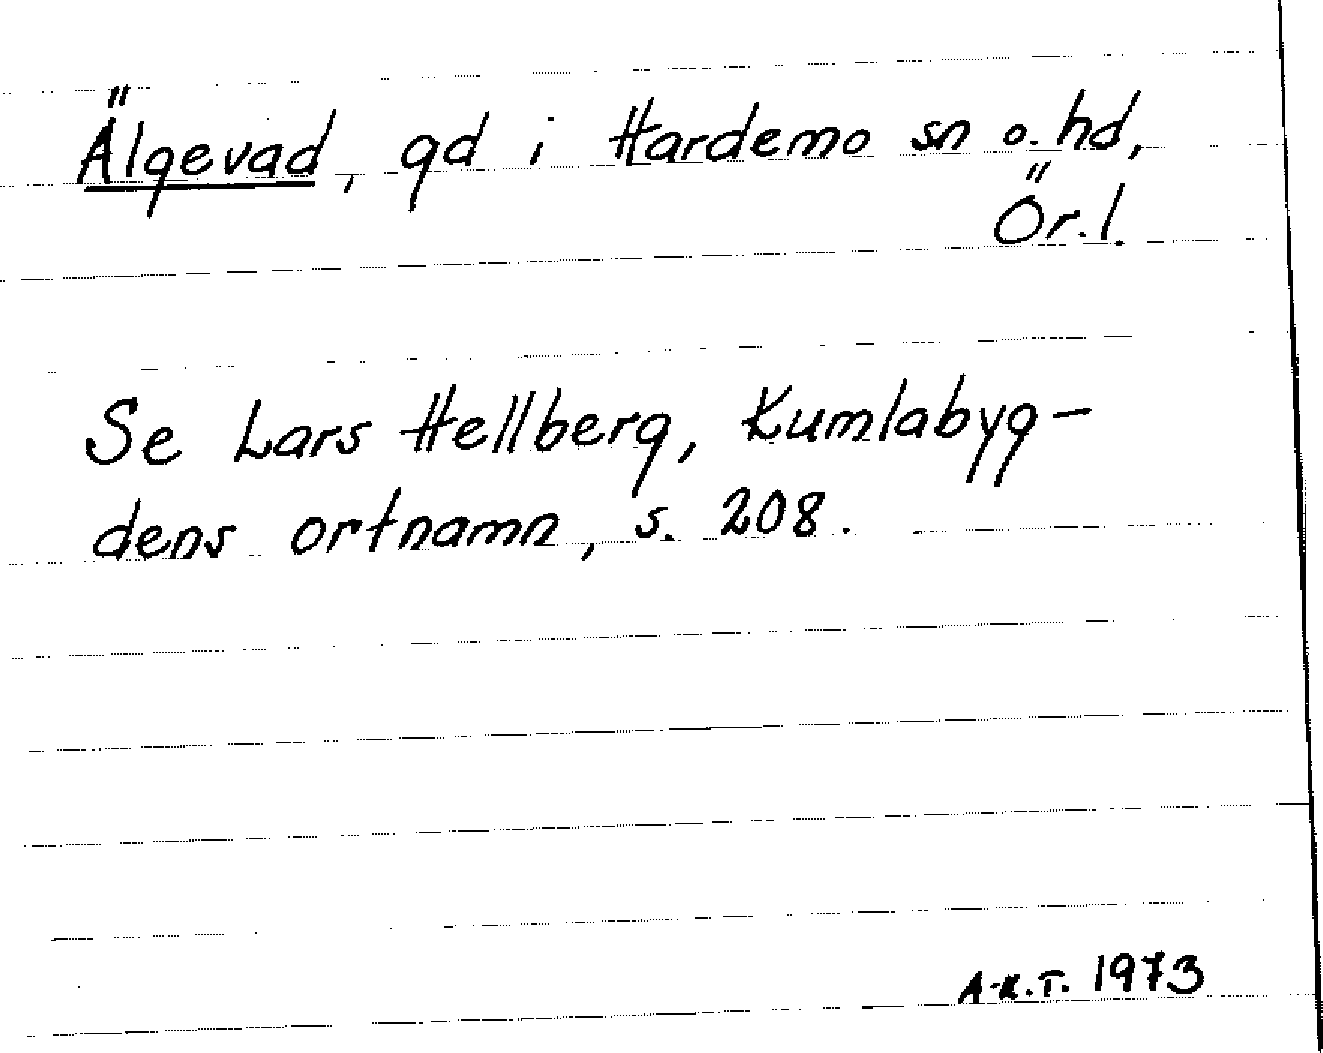 Älgevad, gd i Hardemo sn o. hd,
Ör.l.
Se Lars Hellberg, Kumlabyg-
dens ortnamn, s. 208.
A-K.T. 1973